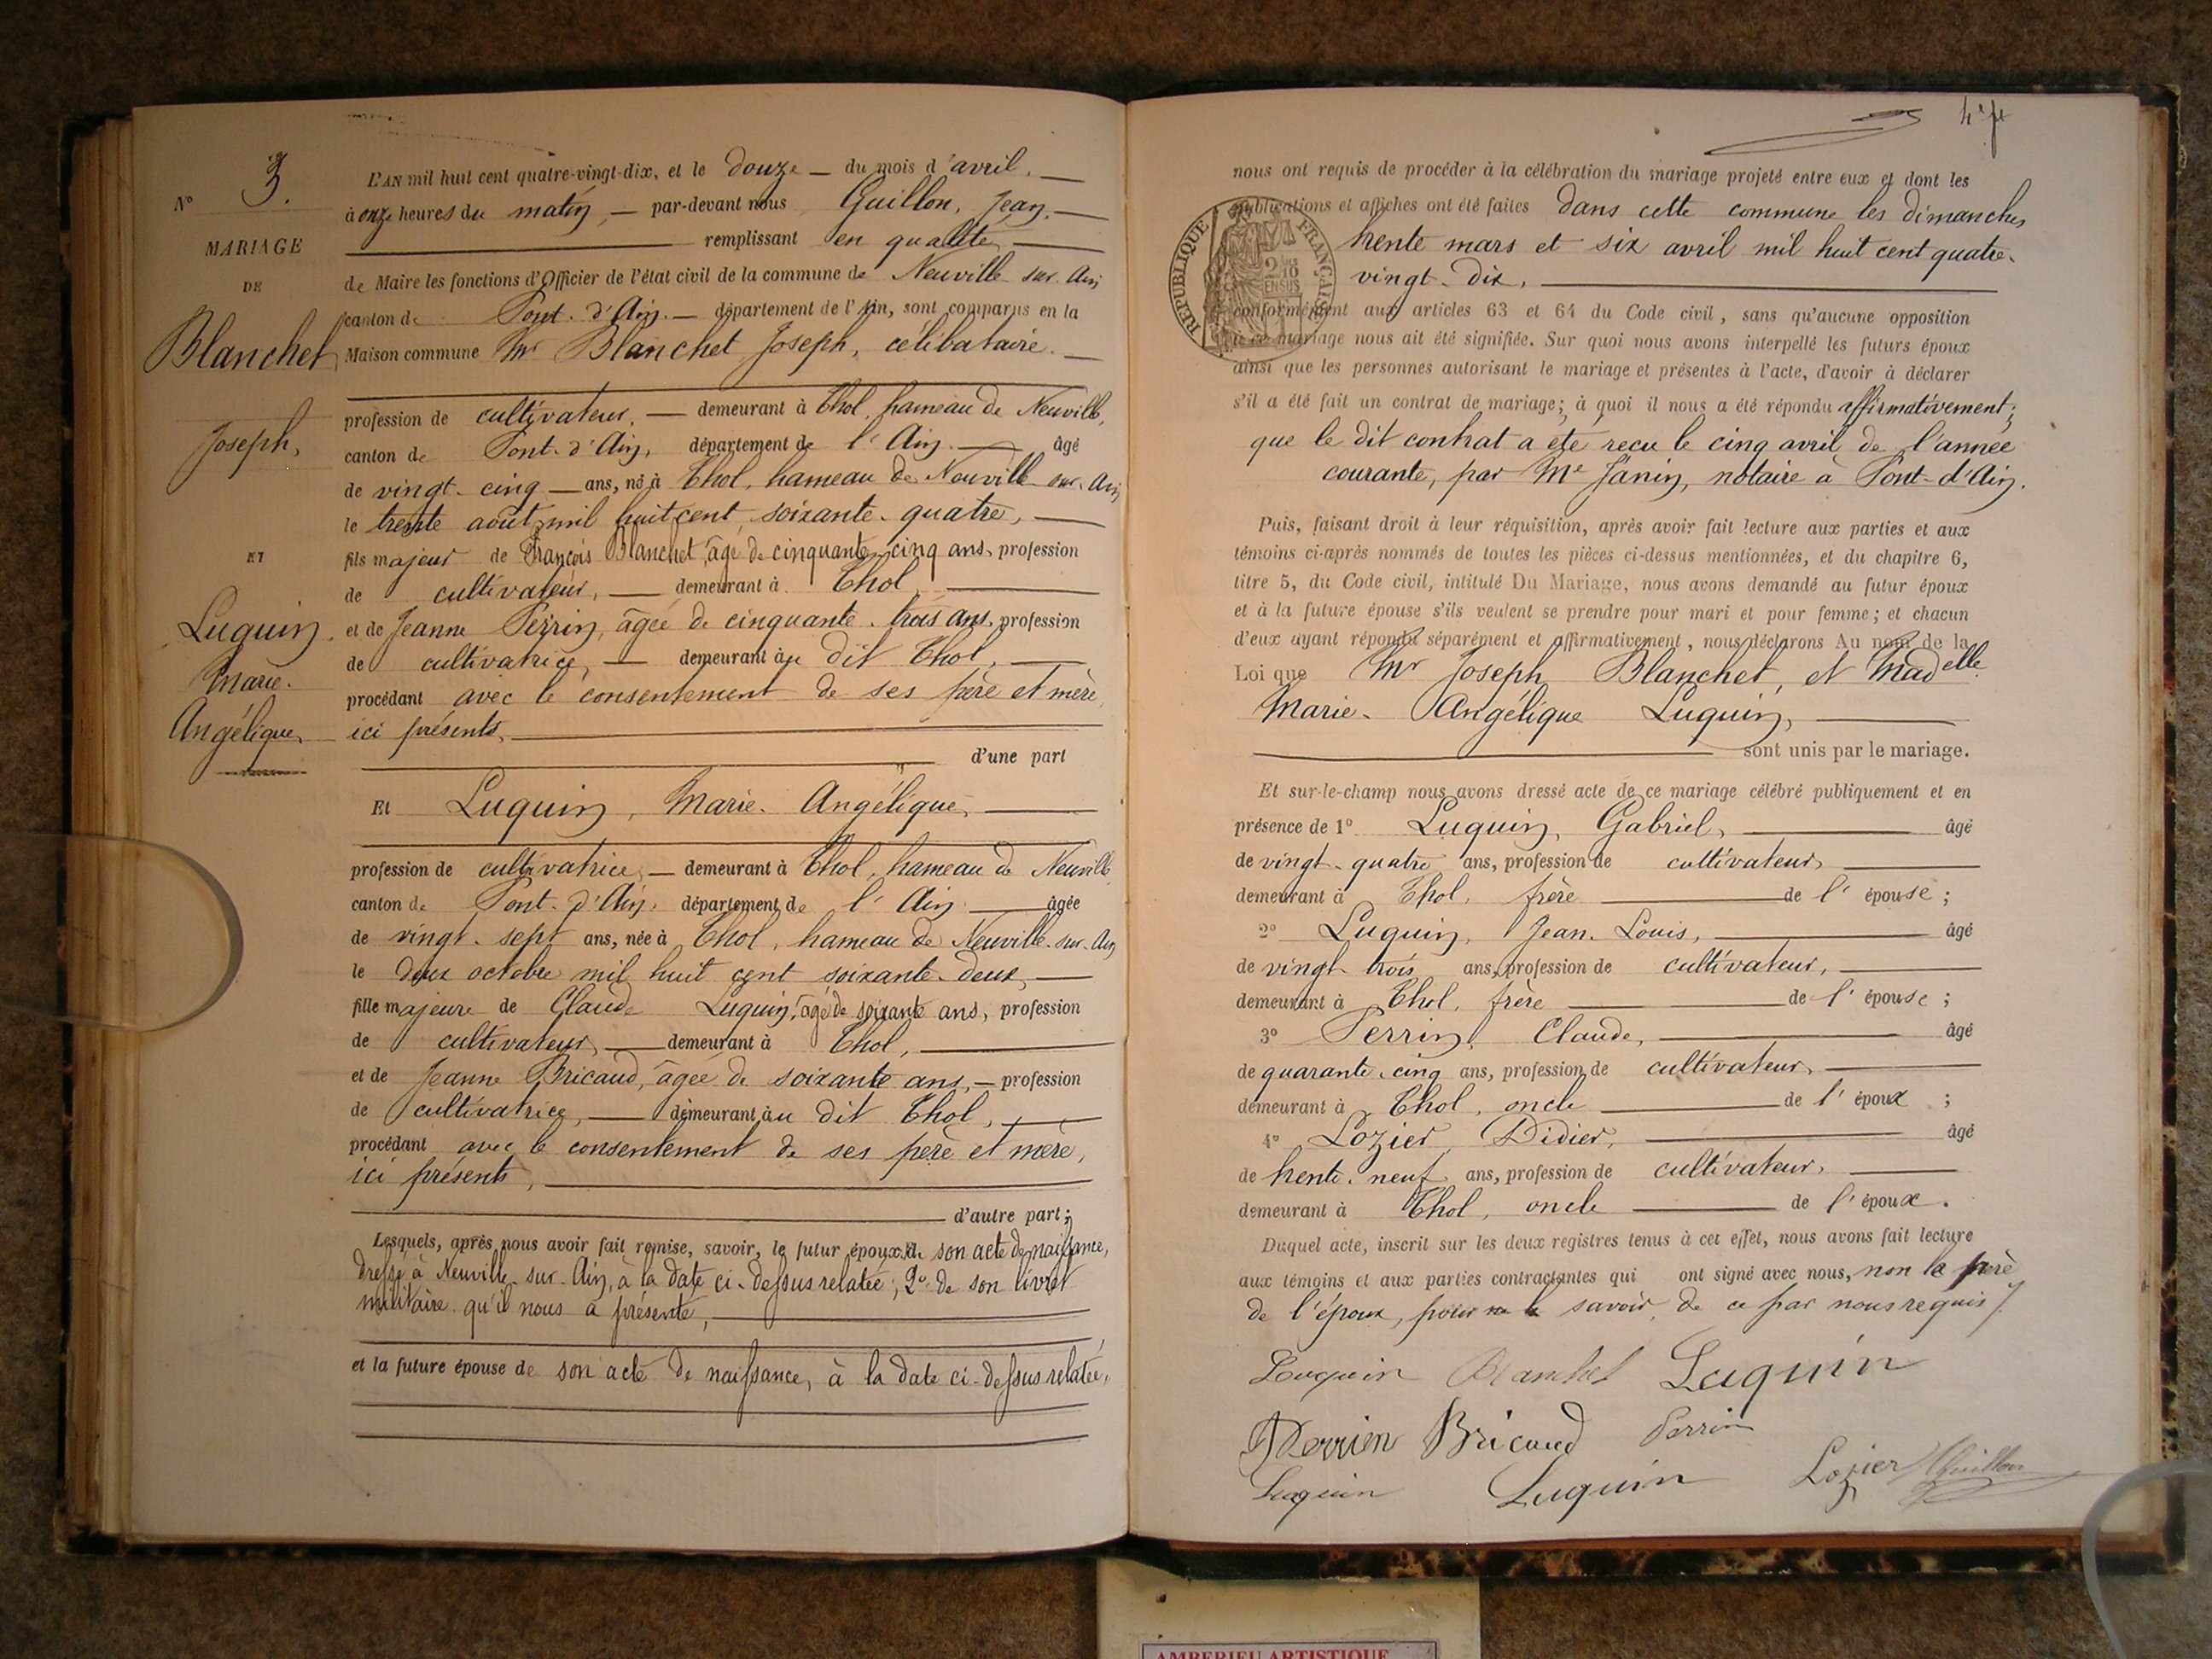 N° 3.
MARIAGE
DE
Blanchet
Joseph,
ET
Luquin
Marie.
Angélique
L'AN mil huit cent quatre-vingt-dix, et le douze du mois d'avril.
à onze heures du matin, par-devant nous Guillon, Jean,
remplissant en qualité
de Maire les fonctions d'Officier de l'état civil de la commune de Neuville sur Ain
canton de Pont-d'Ain. département de l'Ain, sont comparus en la
Maison commune Mr Blanchet Joseph, célibataire.
profession de cultivateur, demeurant à Thol, hameau de Neuville,
canton de Pont-d'Ain, département de l'Ain. âgé
de vingt-cinq ans, né à Thol, hameau de Neuville-sur-Ain
le trente août mil huit cent soixante-quatre,
fils majeur de François Blanchet, âgé de cinquante-cinq ans, profession
de cultivateur, demeurant à Thol
et de Jeanne Perrin, âgée de cinquante-trois ans, profession
de cultivatrice, demeurant au dit Thol,
procédant avec le consentement de ses père et mère,
ici présents,
d'une part
Et Luquin, Marie-Angélique,
profession de cultivatrice, demeurant à Thol, hameau de Neuville
canton de Pont-d'Ain, département de l'Ain âgée
de vingt-sept ans, née à Thol, hameau de Neuville-sur-Ain
le deux octobre mil huit cent soixante-deux,
fille majeure de Claude Luquin, âgé de soixante ans, profession
de cultivateur, demeurant à Thol,
et de Jeanne Bricaud, âgée de soixante ans, profession
de cultivatrice, demeurant au dit Thol,
procédant avec le consentement de ses père et mère,
ici présents,
d'autre part;
Lesquels, après nous avoir fait remise, savoir, le futur époux de son acte de naissance,
dressé à Neuville-sur-Ain, à la date ci-dessus relatée; 2° de son livret
militaire qu'il nous a présenté,
et la future épouse de son acte de naissance, à la date ci-dessus relatée,
nous ont requis de procéder à la célébration du mariage projeté entre eux et dont les
publications et affiches ont été faites dans cette commune les dimanches
trente mars et six avril mil huit cent quatre-
vingt-dix,
RÉPUBLIQUE FRANÇAISE
conformément aux articles 63 et 64 du Code civil, sans qu'aucune opposition
à ce mariage nous ait été signifiée. Sur quoi nous avons interpellé les futurs époux
ainsi que les personnes autorisant le mariage et présentes à l'acte, d'avoir à déclarer
s'il a été fait un contrat de mariage; à quoi il nous a été répondu affirmativement;
que le dit contrat a été reçu le cinq avril de l'année
courante, par Me Janin, notaire à Pont-d'Ain.
Puis, faisant droit à leur réquisition, après avoir fait lecture aux parties et aux
témoins ci-après nommés de toutes les pièces ci-dessus mentionnées, et du chapitre 6,
titre 5, du Code civil, intitulé Du Mariage, nous avons demandé au futur époux
et à la future épouse s'ils veulent se prendre pour mari et pour femme; et chacun
d'eux ayant répondu séparément et affirmativement, nous déclarons Au nom de la
Loi que Mr Joseph Blanchet, et Madelle
Marie-Angélique Luquin,
sont unis par le mariage.
Et sur-le-champ nous avons dressé acte de ce mariage célébré publiquement et en
présence de 1° Luquin, Gabriel, âgé
de vingt-quatre ans, profession de cultivateur,
demeurant à Thol, frère de l'épouse;
2° Luquin, Jean-Louis, âgé
de vingt-trois ans, profession de cultivateur,
demeurant à Thol, frère de l'épouse;
3° Perrin, Claude, âgé
de quarante-cinq ans, profession de cultivateur,
demeurant à Thol, oncle de l'époux;
4° Lozier, Didier, âgé
de trente-neuf ans, profession de cultivateur,
demeurant à Thol, oncle de l'époux.
Duquel acte, inscrit sur les deux registres tenus à cet effet, nous avons fait lecture
aux témoins et aux parties contractantes qui ont signé avec nous, non le père
de l'époux, pour ne le savoir, de ce par nous requis
Luquin Blanchet Luquin
Perrien Bricaud Perrin
Luquin Luquin Lozier Guillon
AMBERIEU ARTISTIQUE